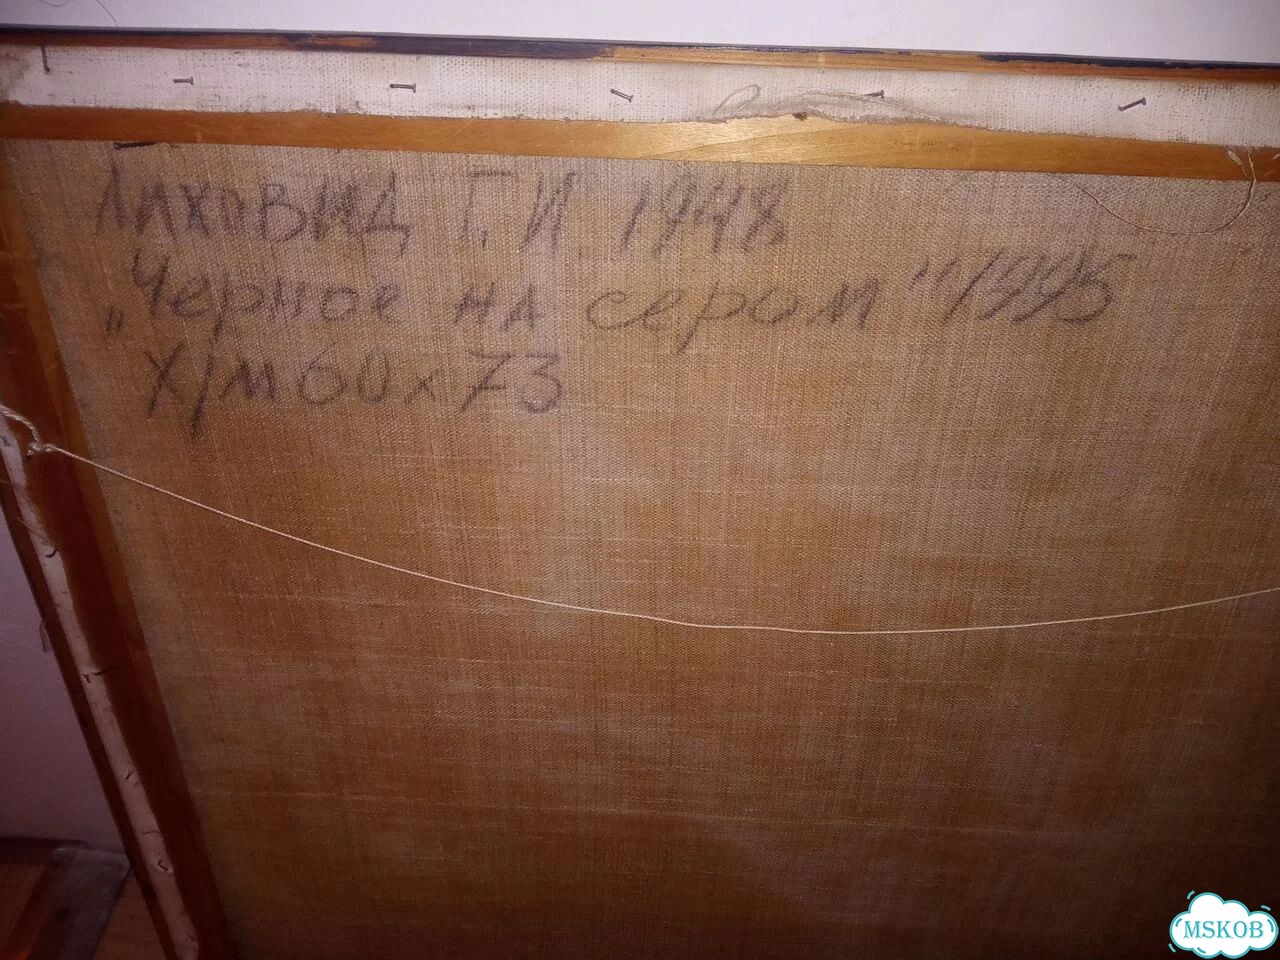 Лаховид Г.И. 1948
„Черное на сером" 1995
Х/м 60х73
MSKOB